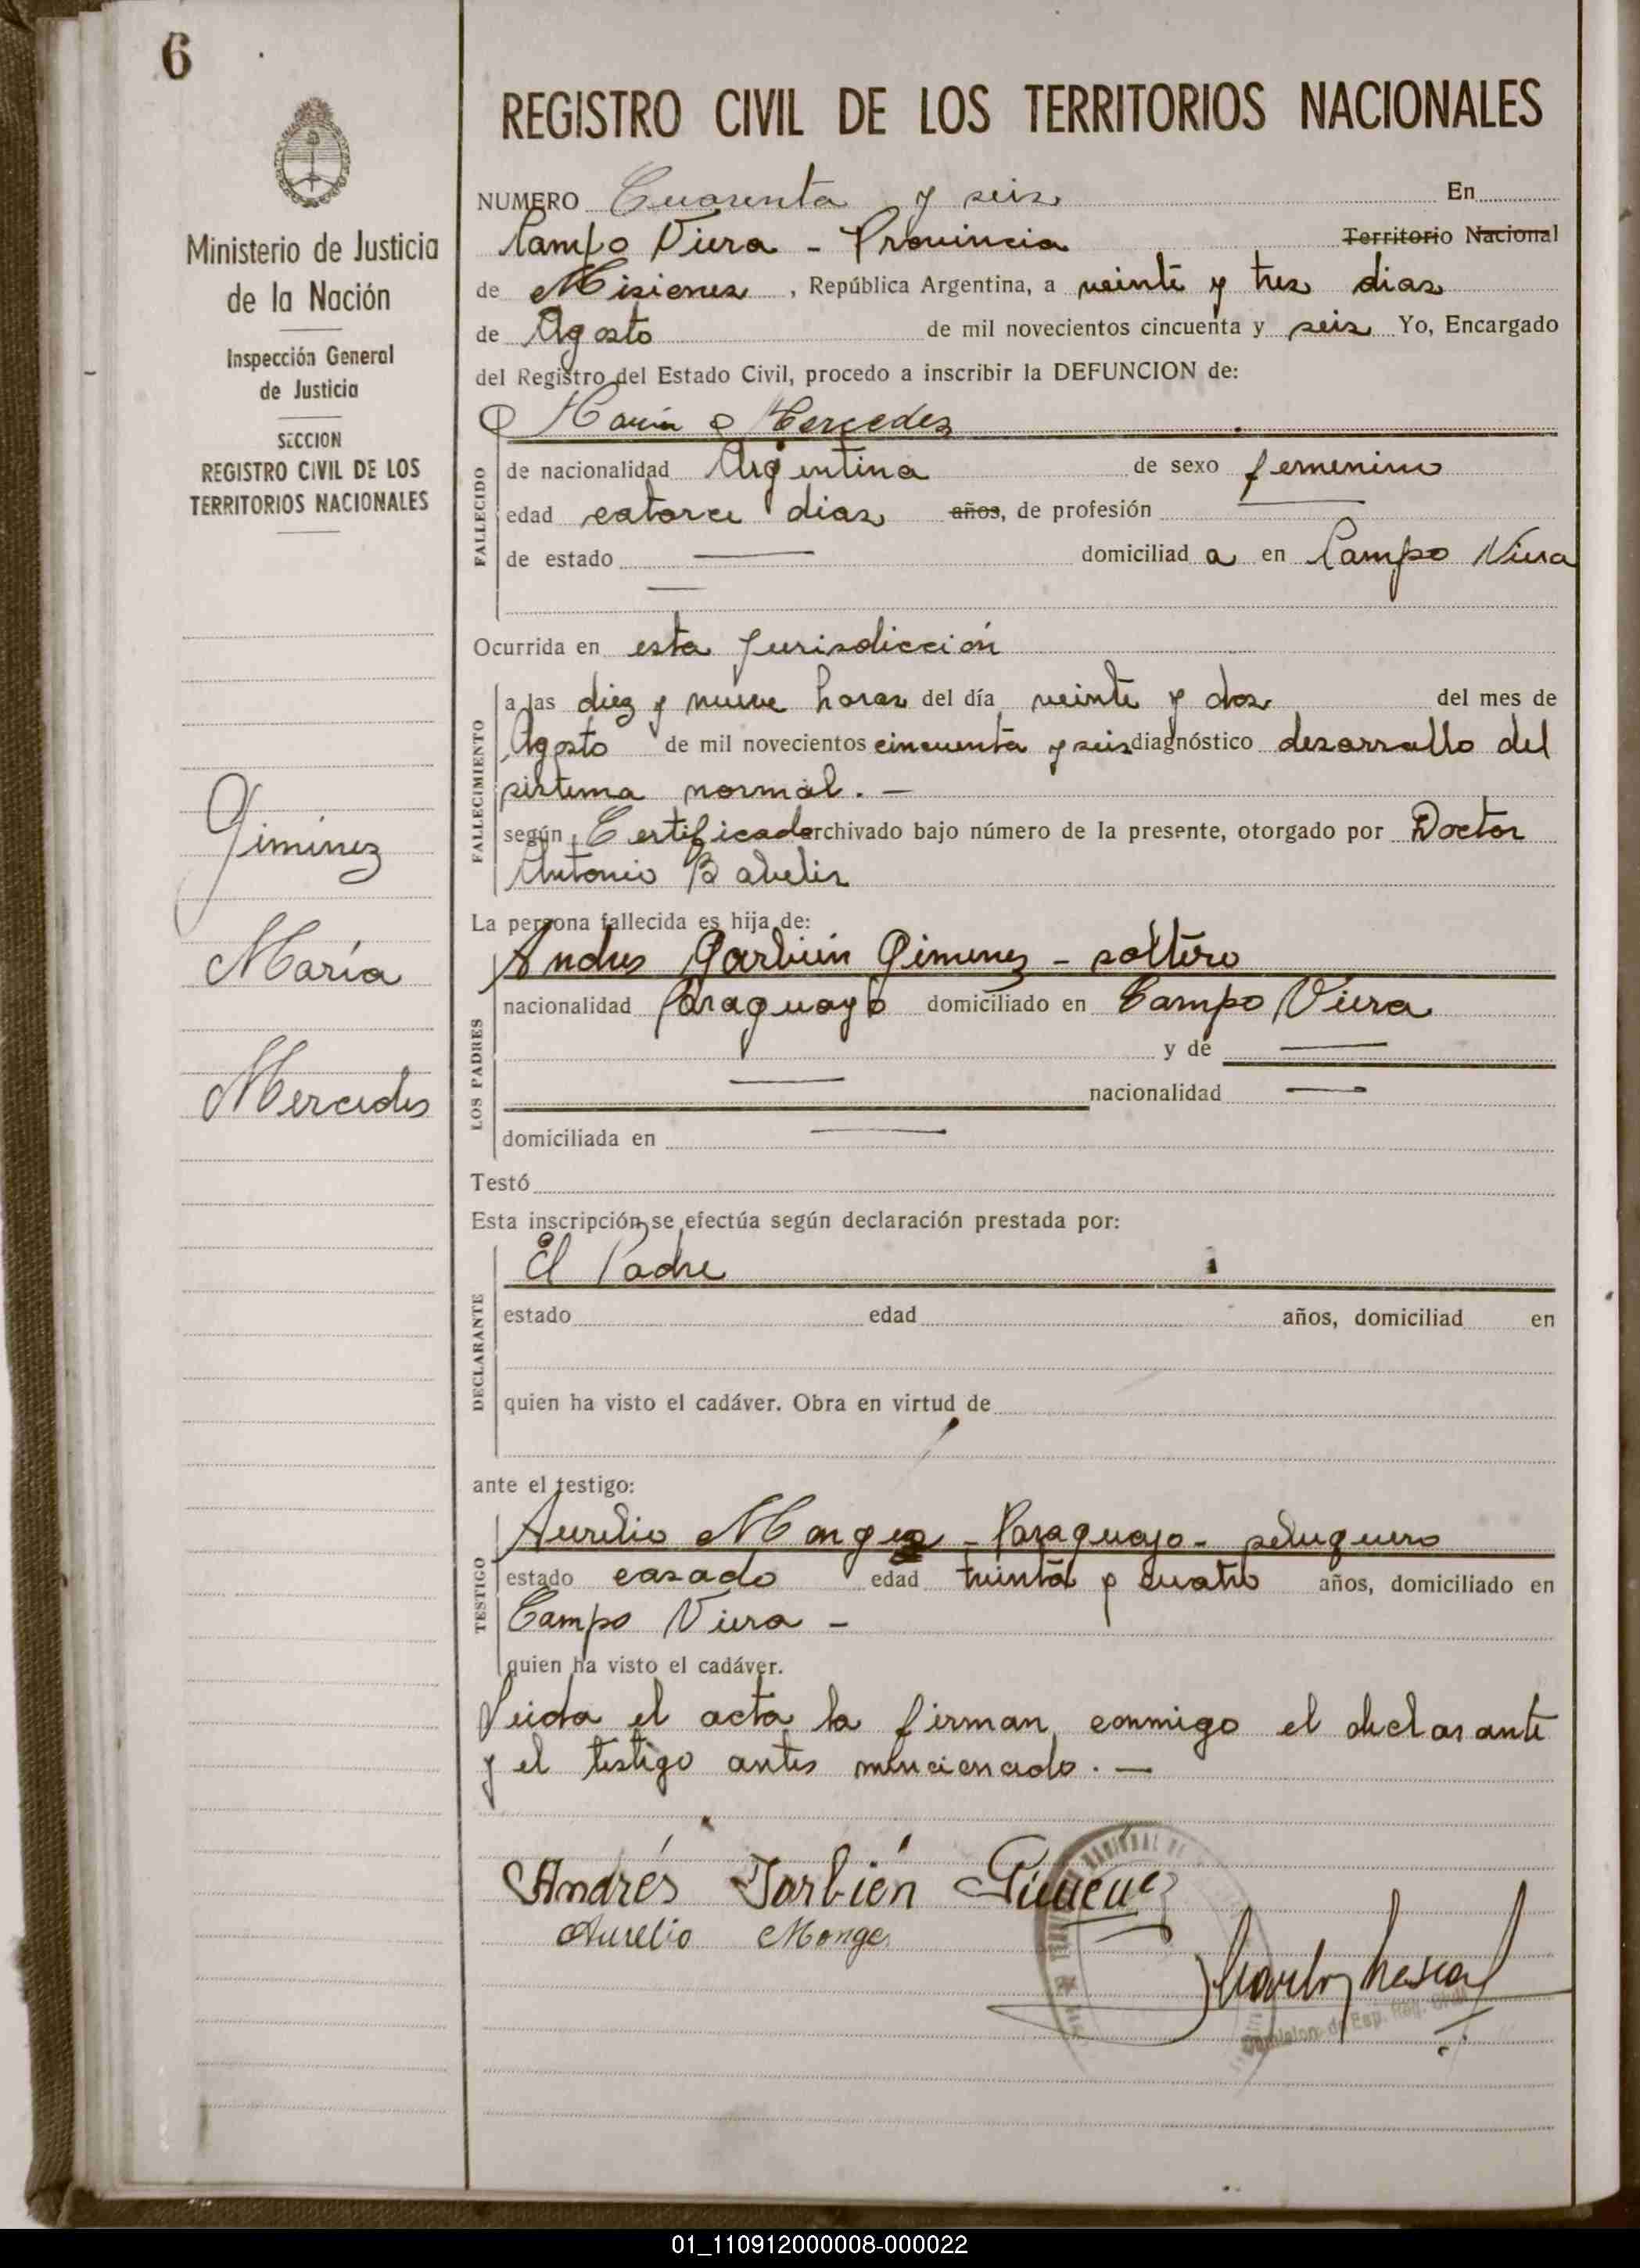 6
REGISTRO CIVIL DE LOS TERRITORIOS NACIONALES
Ministerio de Justicia
de la Nación
Inspección General
de Justicia
SECCION
REGISTRO CIVIL DE LOS
TERRITORIOS NACIONALES
Giminez
María
Mercedes
NUMERO Cuarenta y seis En
Campo Viera - Provincia Territorio Nacional
de Misiones, República Argentina, a veinte y tres dias
de Agosto de mil novecientos cincuenta y seis Yo, Encargado
del Registro del Estado Civil, procedo a inscribir la DEFUNCION de:
María Mercedes
FALLECIDO
de nacionalidad Argentina de sexo femenino
edad catorce dias años, de profesión
de estado — domiciliad a en Campo Viera
—
Ocurrida en esta Jurisdicción
FALLECIMIENTO
a las diez y nueve horas del día veinte y dos del mes de
Agosto de mil novecientos cincuenta y seis diagnóstico desarrollo del
sistema normal. —
según Certificado archivado bajo número de la presente, otorgado por Doctor
Antonio
La persona fallecida es hija de:
LOS PADRES
Andres Garbien Gimenez - soltero
nacionalidad Paraguayo domiciliado en Campo Viera
y de —
— nacionalidad —
domiciliada en —
Testó
Esta inscripción se efectúa según declaración prestada por:
DECLARANTE
El Padre
estado edad años, domiciliad en
quien ha visto el cadáver. Obra en virtud de
ante el testigo:
TESTIGO
Aurelio Monges - Paraguayo - peluquero
estado casado edad treinta y cuatro años, domiciliado en
Campo Viera -
quien ha visto el cadáver.
Leida el acta la firman conmigo el declarante
y el testigo antes menciencado. —
Andrés Garbién Gimenez
Aurelio Monges
01_110912000008-000022